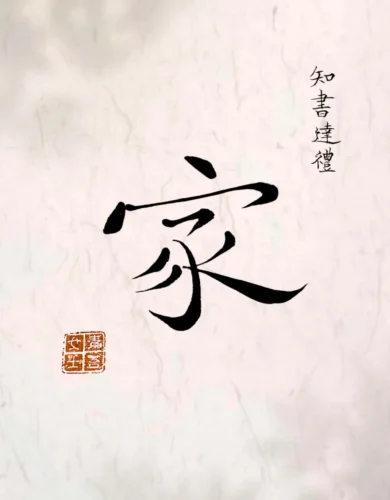 知書達禮
家